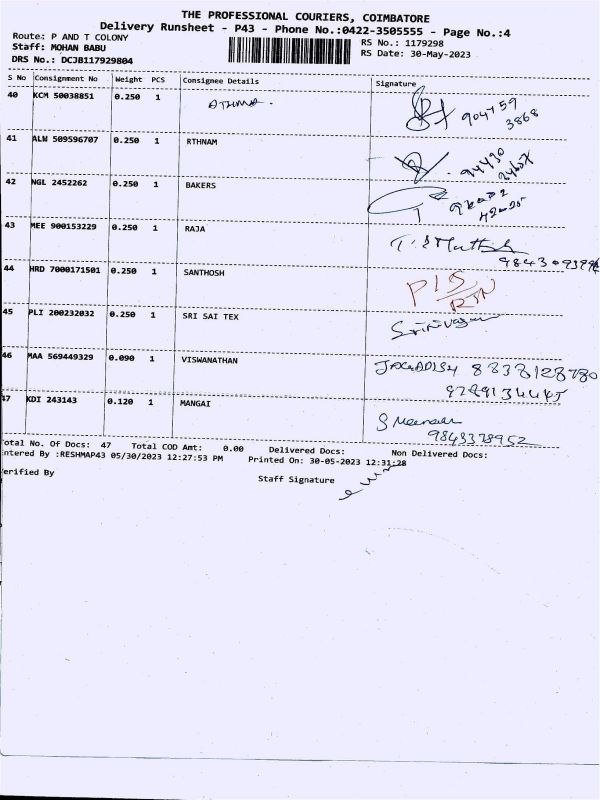 THE PROFESSIONAL COURIERS, COIMBATORE
Delivery Runsheet - P43 - Phone No.:0422-3505555 - Page No.:4
Route: P AND T COLONY
RS No.: 1179298
Staff: MOHAN BABU
RS Date: 30-May-2023
DRS No.: DCJB117929804
S No Consignment No Weight PCS Consignee Details Signature
40 KCM 50038851 0.250 1 ATHMA.
904759
3868
41 ALW 509596707 0.250 1 RTHNAM
94430
42 NGL 2452262 0.250 1 BAKERS
43 MEE 900153229 0.250 1 RAJA
44 HRD 7000171501 0.250 1 SANTHOSH
45 PLI 200232032 0.250 1 SRI SAI TEX
Srinivasan
46 MAA 569449329 0.090 1 VISWANATHAN
JAGADISH 8838128780
47 KDI 243143 0.120 1 MANGAI
S Meena
9843378952
otal No. Of Docs: 47 Total COD Amt: 0.00 Delivered Docs: Non Delivered Docs:
ntered By :RESHMAP43 05/30/2023 12:27:53 PM Printed On: 30-05-2023 12:31:28
erified By
Staff Signature